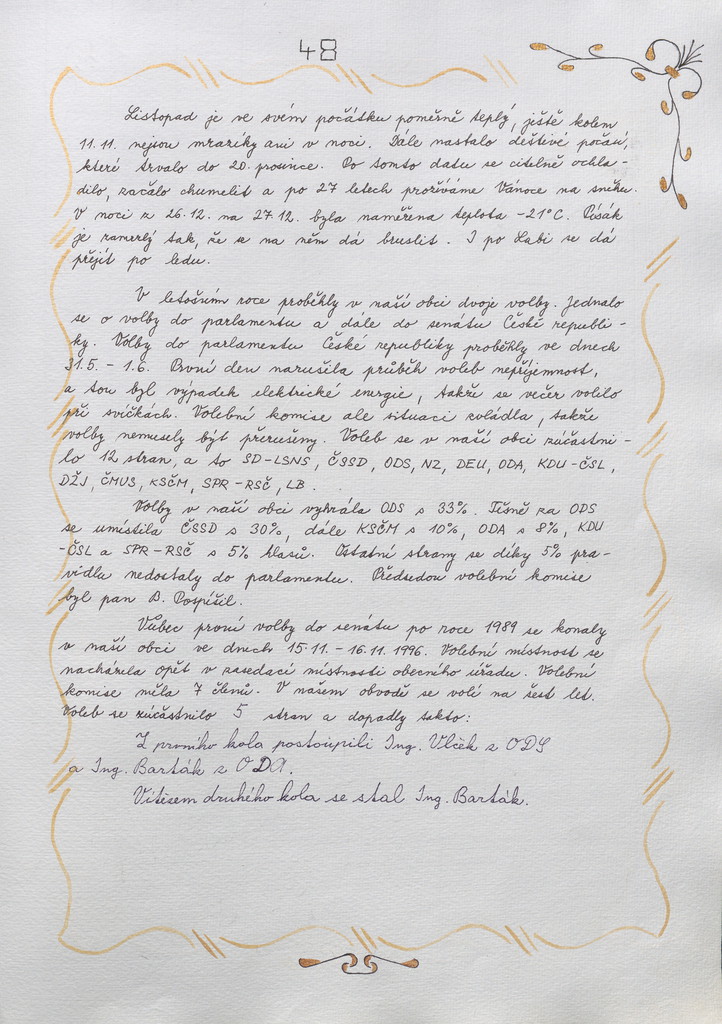 48
Listopad je ve svém počátku poměrně teplý, ještě kolem
11.11. nejsou mrazíky ani v noci. Dále nastalo deštivé počasí,
které trvalo do 20. prosince. Po tomto datu se citelně ochla-
dilo, začalo chumelit a po 27 letech prožíváme Vánoce na sněhu.
V noci z 26.12. na 27.12. byla naměřena teplota -21°C. Písák
je zamrzlý tak, že se na něm dá bruslit. I po Labi se dá
přejít po ledu.
V letošním roce proběhly v naší obci dvoje volby. Jednalo
se o volby do parlamentu a dále do senátu České republi-
ky. Volby do parlamentu České republiky proběhly ve dnech
31.5. - 1.6. První den narušila průběh voleb nepříjemnost,
a tou byl výpadek elektrické energie, takže se večer volilo
při svíčkách. Volební komise ale situaci zvládla, takže
volby nemusely být přerušeny. Voleb se v naší obci zúčastni-
lo 12 stran, a to SD-LSNS, ČSSD, ODS, NZ, DEU, ODA, KDU-ČSL,
DŽJ, ČMUS, KSČM, SPR-RSČ, LB.
Volby v naší obci vyhrála ODS s 33%. Těsně za ODS
se umístila ČSSD s 30%, dále KSČM s 10%, ODA s 8%, KDU
-ČSL a SPR-RSČ s 5% hlasů. Ostatní strany se díky 5% pra-
vidlu nedostaly do parlamentu. Předsedou volební komise
byl pan B. Pospíšil.
Vůbec první volby do senátu po roce 1989 se konaly
v naší obci ve dnech 15.11. - 16.11. 1996. Volební místnost se
nacházela opět v zasedací místnosti obecního úřadu. Volební
komise měla 7 členů. V našem obvodě se volí na šest let.
Voleb se zúčastnilo 5 stran a dopadly takto:
Z prvního kola postoupili Ing. Vlček z ODS
a Ing. Barták z ODA.
Vítězem druhého kola se stal Ing. Barták.